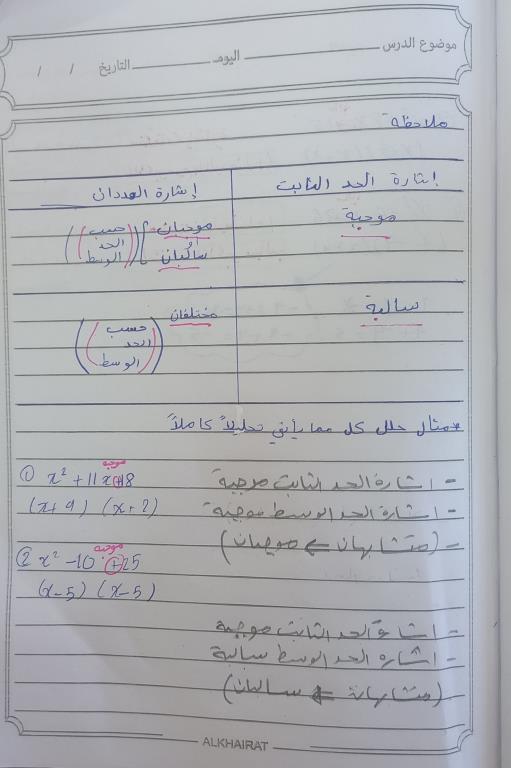 موضوع الدرس اليوم التاريخ / /
ملاحظة
إشارة الحد الثابت إشارة العددان
موجبة موجبان (حسب
الحد
سالبان الوسط)
سالبة مختلفان (حسب
الحد
الوسط)
مثال حلل كل مما يأتي تحليلاً كاملاً
موجبة
① x² + 11x + 18 - اشارة الحد الثابت موجبة
(x + 9) (x + 2) - اشارة الحد الوسط موجبة
- (متشابهان ← موجبان)
موجبة
② x² - 10 + 25
(x - 5) (x - 5)
- اشارة الحد الثابت موجبة
- اشاره الحد الوسط سالبة
(متشابهة ← سالبان)
ALKHAIRAT